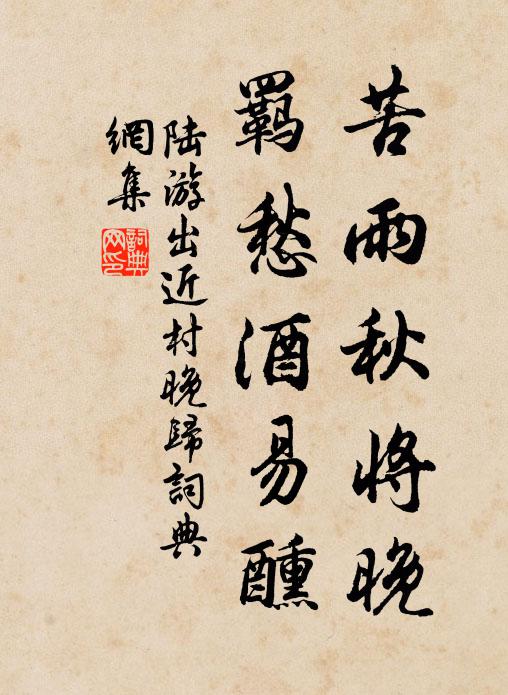 苦雨秋將晚
羈愁酒易醺
陆游出近村晚歸詞典
網集
詞典
网印